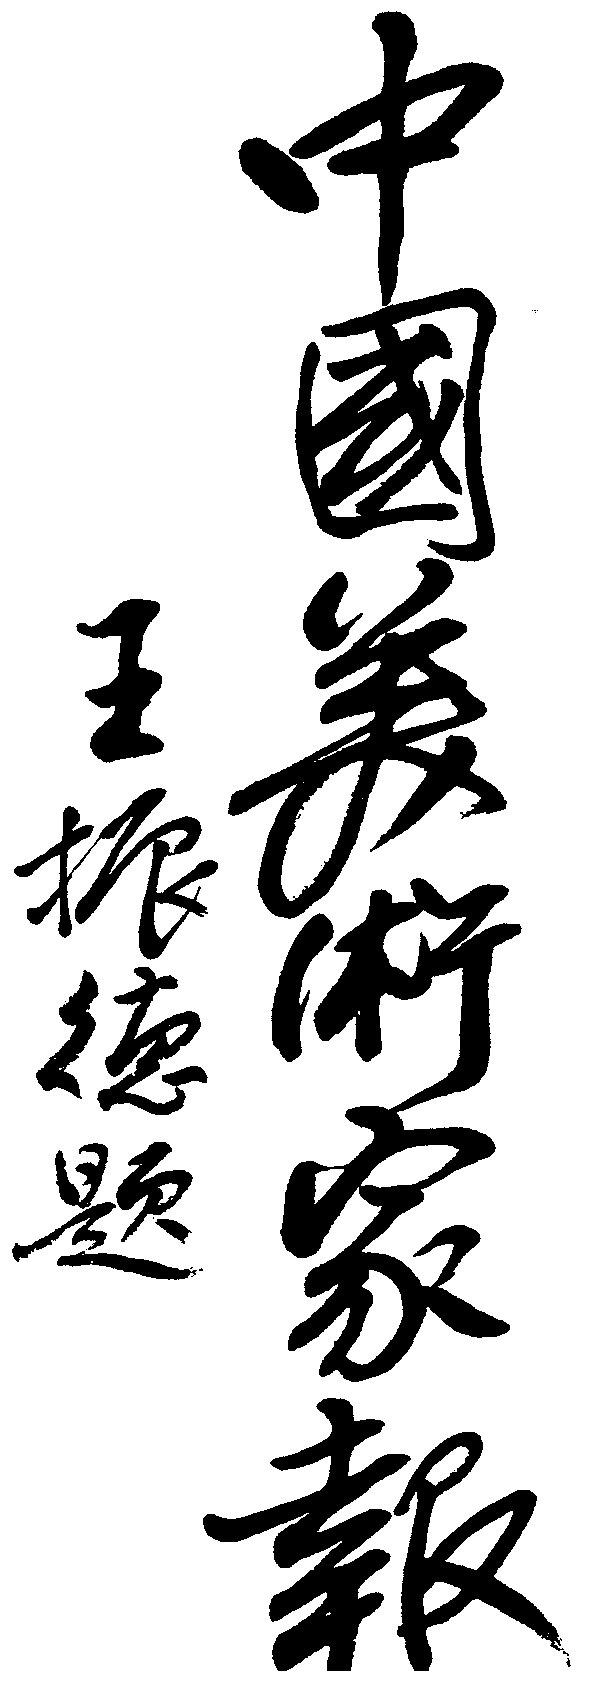 中國美術家報
王振德題